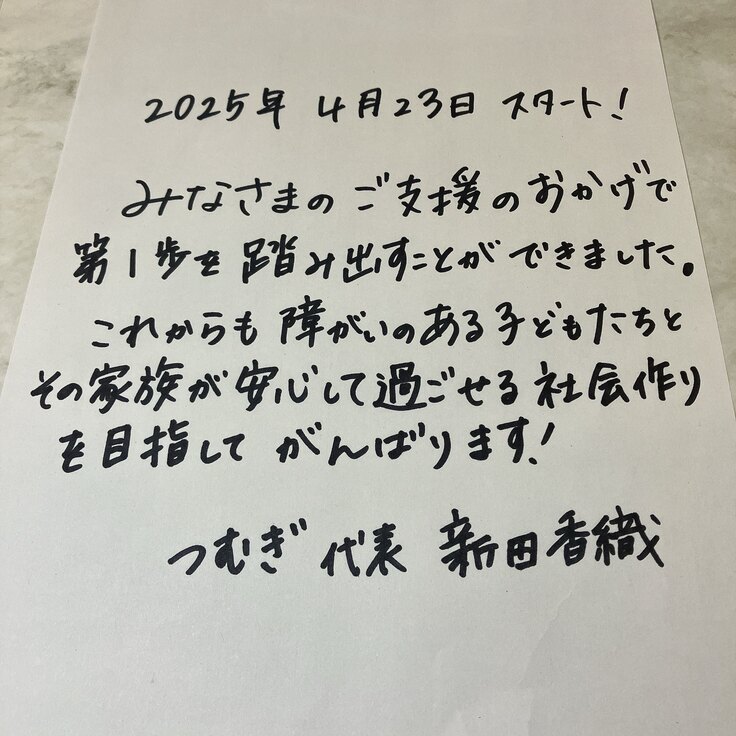 2025年 4月23日 スタート!
みなさまの ご支援のおかげで
第1歩を 踏み出すことができました。
これからも 障がいのある子どもたちと
その家族が 安心して過ごせる 社会作り
を目指して がんばります!
つむぎ 代表 新田香織